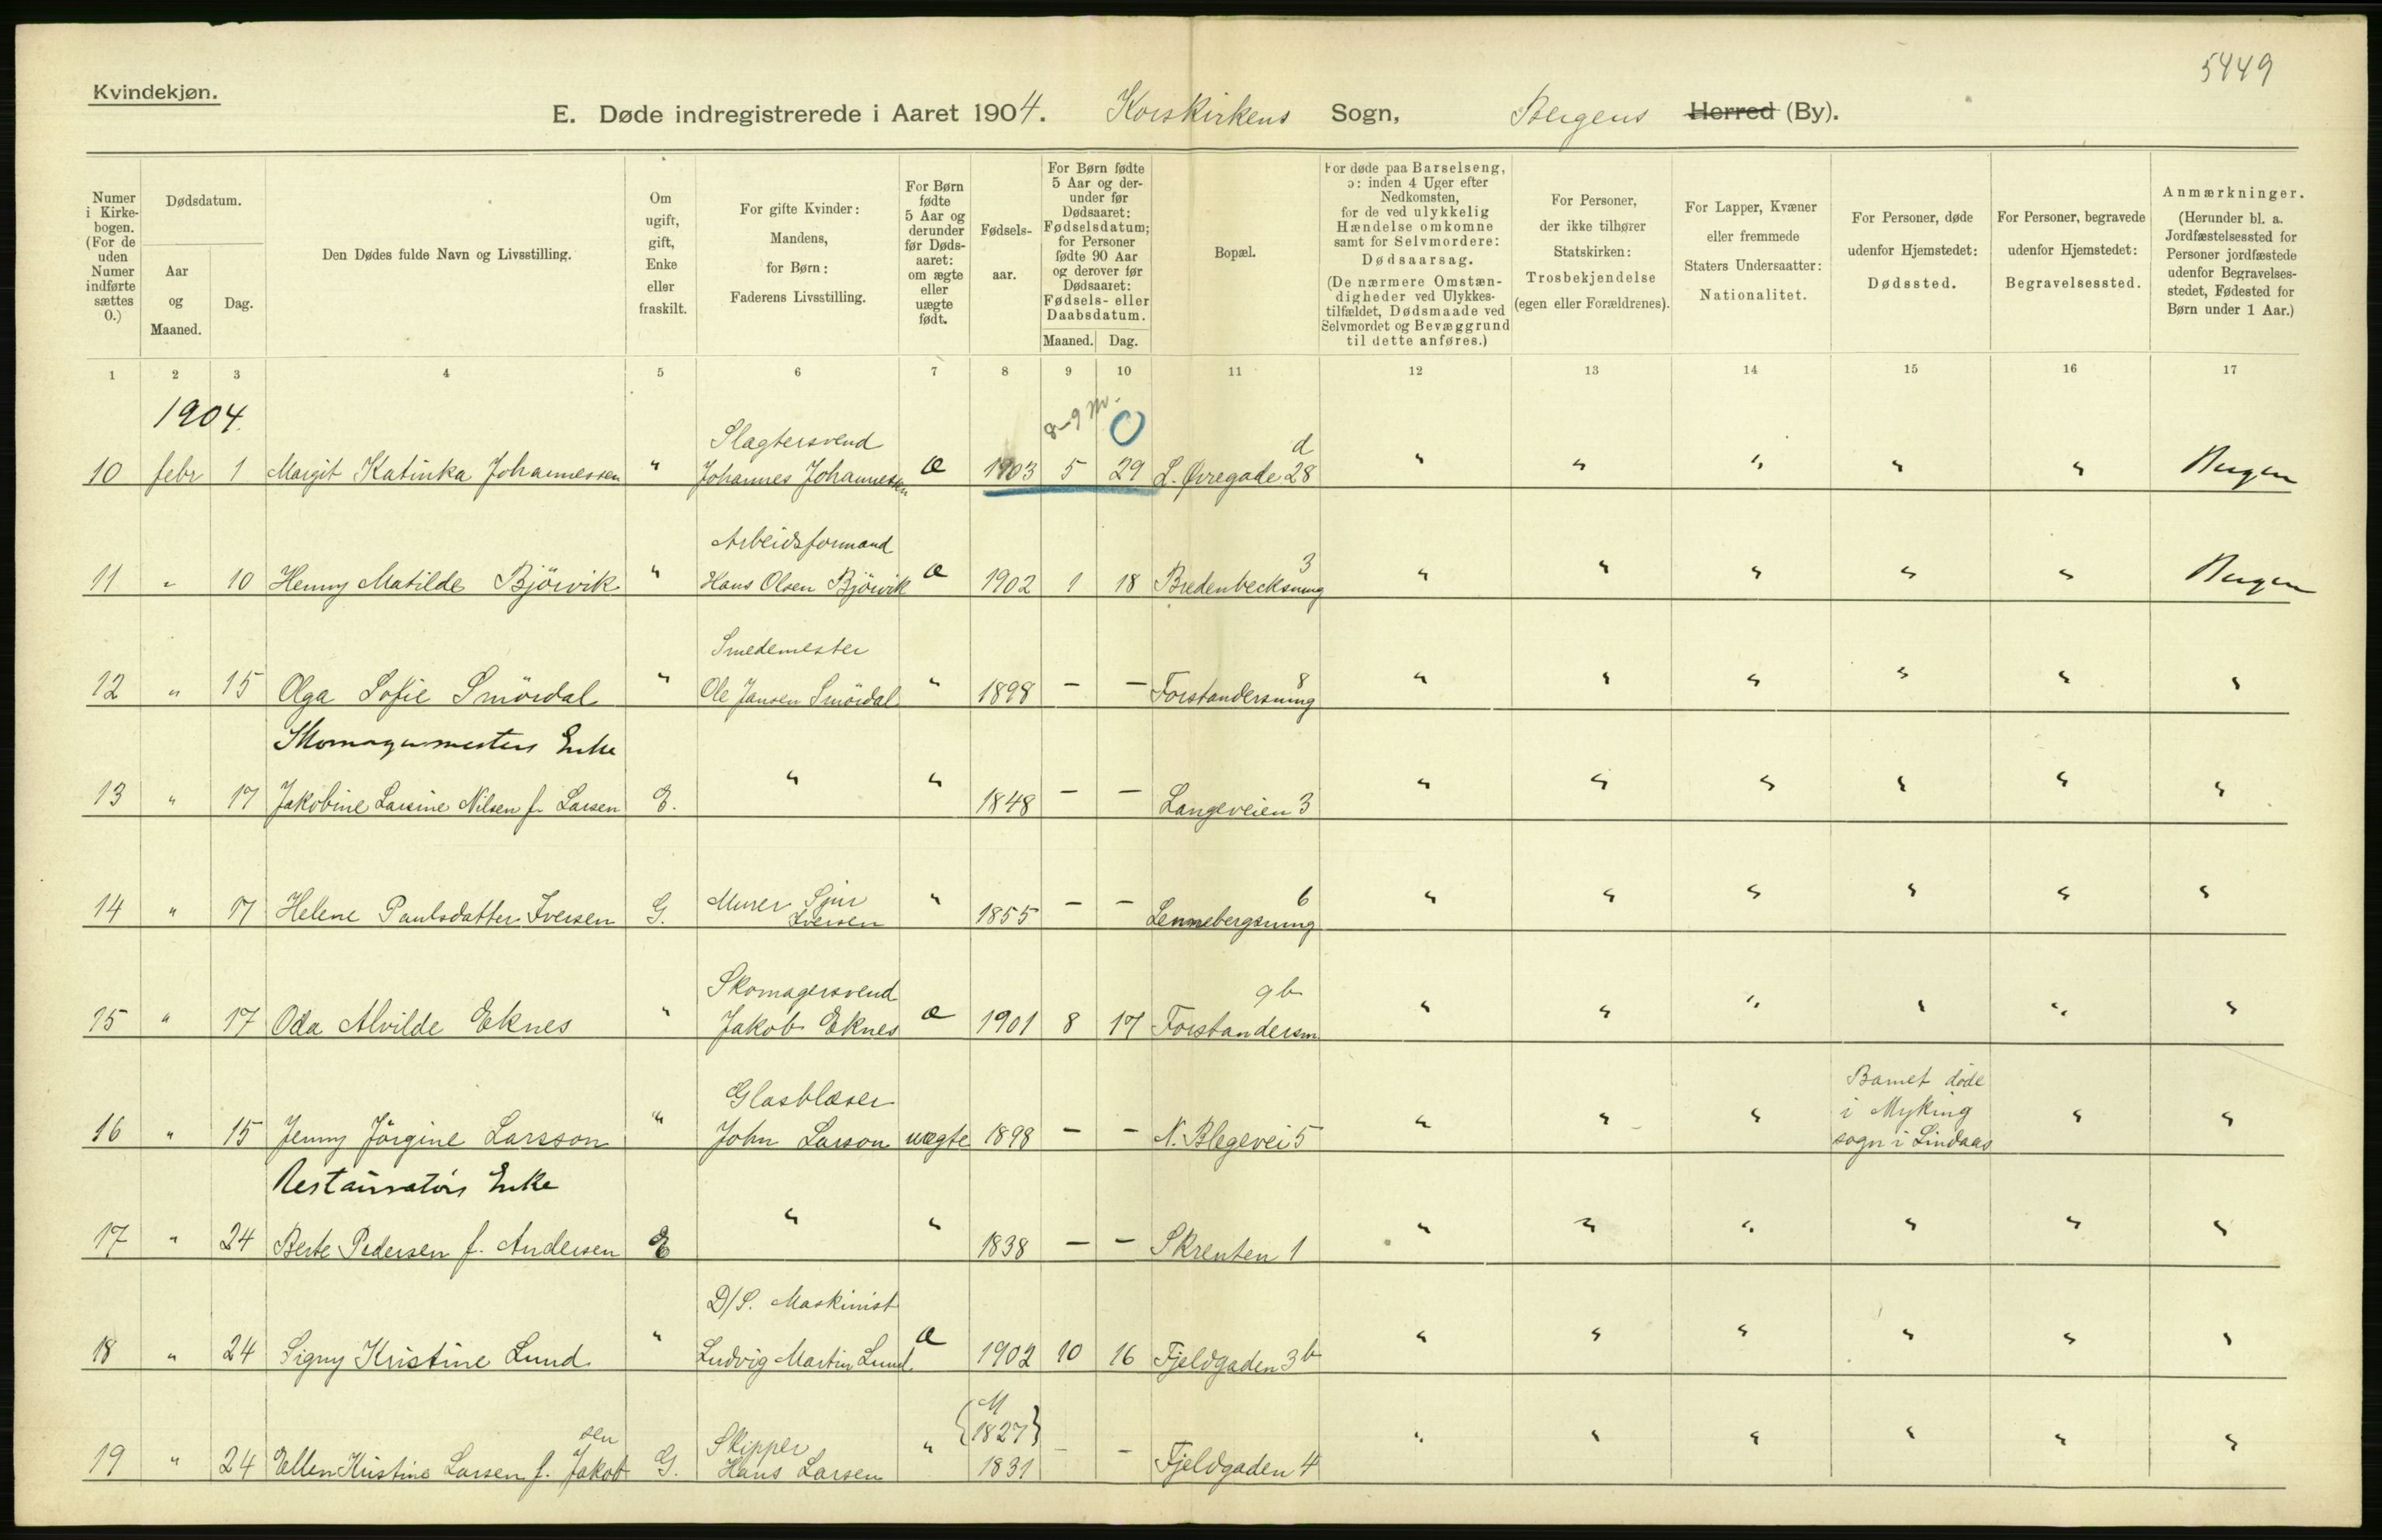 5449
Kvindekjøn.
E. Døde indregistrerede i Aaret 1904. Korskirkens Sogn, Bergens Herred (By).
Numer i Kirkebogen. (For de uden Numer indførte sættes 0.)
Dødsdatum.
Aar og Maaned.
Dag.
Den Dødes fulde Navn og Livsstilling.
Om ugift, gift, Enke eller fraskilt.
For gifte Kvinder: Mandens, for Børn: Faderens Livsstilling.
For Børn fødte 5 Aar og derunder før Dødsaaret: om ægte eller uægte født.
Fødselsaar.
For Børn fødte 5 Aar og derunder før Dødsaaret: Fødselsdatum; for Personer fødte 90 Aar og derover før Dødsaaret: Fødsels- eller Daabsdatum.
Maaned. Dag.
Bopæl.
For døde paa Barselseng, ɔ: inden 4 Uger efter Nedkomsten, for de ved ulykkelig Hændelse omkomne samt for Selvmordere: Dødsaarsag. (De nærmere Omstændigheder ved Ulykkestilfældet, Dødsmaade ved Selvmordet og Bevæggrund til dette anføres.)
For Personer, der ikke tilhører Statskirken: Trosbekjendelse (egen eller Forældrenes).
For Lapper, Kvæner eller fremmede Staters Undersaatter: Nationalitet.
For Personer, døde udenfor Hjemstedet: Dødssted.
For Personer, begravede udenfor Hjemstedet: Begravelsessted.
Anmærkninger. (Herunder bl. a. Jordfæstelsessted for Personer jordfæstede udenfor Begravelsesstedet, Fødested for Børn under 1 Aar.)
1 2 3 4 5 6 7 8 9 10 11 12 13 14 15 16 17
1904.
8-9 m. 0
Slagtersvend d
10 febr 1 Margit Katinka Johannessen " Johannes Johannessen æ 1903 5 29 L. Øvregade 28 " " " " " Bergen
Arbeidsformand 3
11 " 10 Henny Matilde Björvik " Hans Olsen Björvik æ 1902 1 18 Bredenbecksmug " " " " " Bergen
Smedemester 8
12 " 15 Olga Sofie Smördal " Ole Jansen Smördal " 1898 – – Forstandersmug " " " " " "
Skomagermesters Enke
13 " 17 Jakobine Larsine Nilsen f. Larsen E. " " 1848 – – Langeveien 3 " " " " " "
Murer Sjur 6
14 " 17 Helene Paulsdatter Iversen G. Iversen " 1855 – – Lennebergsmug " " " " " "
Skomagersvend 9b
15 " 17 Oda Alvilde Eknes " Jakob Eknes æ 1901 8 17 Forstandersm " " " " " "
Glasblæser Barnet døde
i Myking
16 " 15 Jenny Jörgine Larsson " John Larson uægte 1898 – – N. Blegevei 5 " " " sogn i Lindaas " "
Restauratörs Enke
17 " 24 Berte Pedersen f. Andersen E " " 1838 – – Skrenten 1 " " " " " "
D/S. Maskinist
18 " 24 Signy Kristine Lund " Ludvig Martin Lund æ 1902 10 16 Fjeldgaden 3b " " " " " "
M
sen Skipper {1827}
19 " 24 Ellen Kristine Larsen f. Jakob G. Hans Larsen " 1831 – – Fjeldgaden 4 " " " " " "